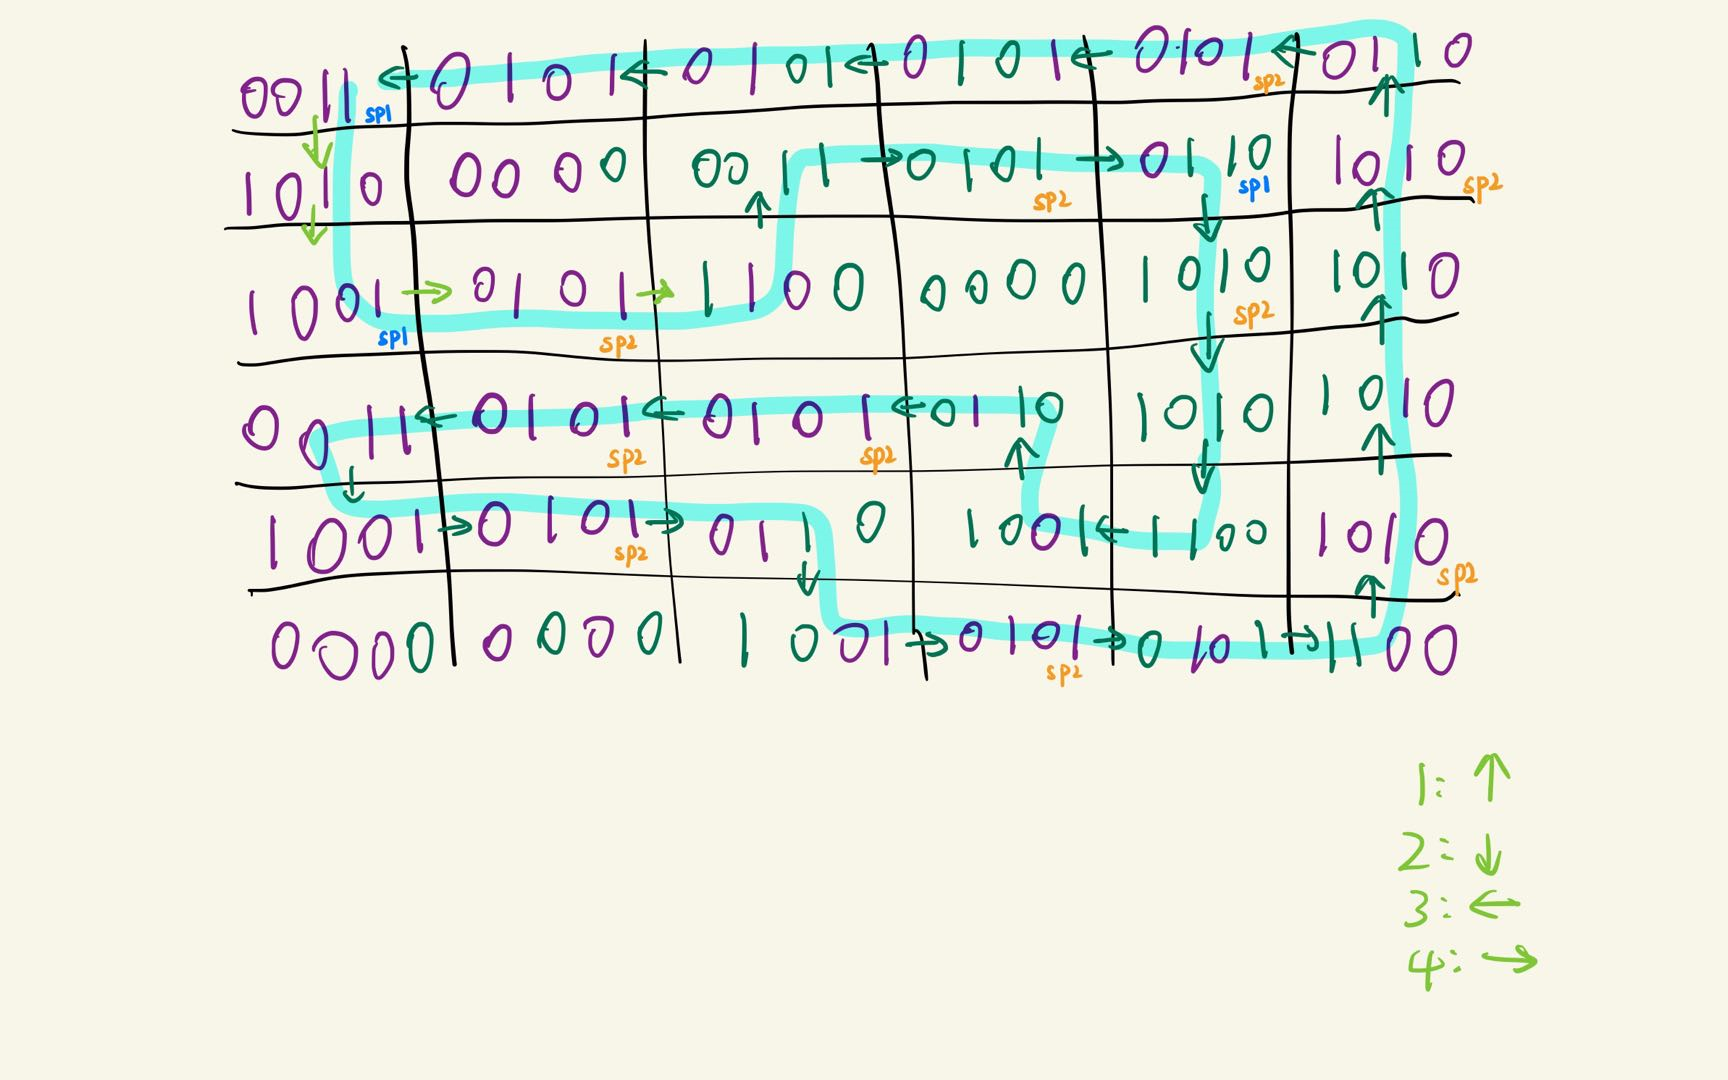 0011 sp1 ← 0101 ← 0101 ← 0101 ← 0101 sp2 ← 0110
↓ ↑
1010 0000 0011 → 0101 sp2 → 0110 sp1 1010 sp2
↓ ↑ ↓ ↑
1001 sp1 → 0101 sp2 → 1100 0000 1010 sp2 1010
↓ ↑
0011 ← 0101 sp2 ← 0101 sp2 ← 0110 1010 1010
↓ ↑ ↓ ↑
1001 → 0101 sp2 → 0110 1001 ← 1100 1010 sp2
↓ ↑
0000 0000 1001 → 0101 sp2 → 0101 → 1100
1: ↑
2: ↓
3: ←
4: →